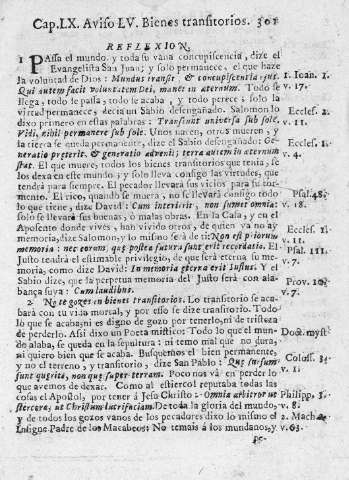 Cap. LX. Aviso LV. Bienes transitorios. 301
REFLEXION.
1 PAssa el mundo, y toda su vana concupiscencia, dize el
Evangelista San Juan; y solo permanece, el que haze
la voluntad de Dios: Mundus transit, & concupiscentia ejus. 1. Ioan. 1.
Qui autem facit voluntatem Dei, manet in aeternum. Todo se v. 17.
llega, todo se passa, todo se acaba, y todo perece; solo la
virtud permanece, dezia un Sabio desengañado. Salomon lo
dixo primero en estas palabras: Transeunt universa sub sole. Eccles. 2.
Vidi, nihil permanere sub sole. Unos nacen, otros mueren, y v. 11.
la tierra se queda permanente, dize el Sabio desengañado: Ge-
neratio praeterit, & generatio advenit; terra autem in aeternum Eccles. 1.
stat. El que mueve, todos los bienes transitorios que tenia, se v. 4.
los dexa en este mundo; y solo lleva consigo las virtudes, que
tendrá para siempre. El pecador llevará sus vicios para su tor-
mento. El rico, quando se muera, no se llevará consigo todo
lo que tiene, dize David: Cum interierit, non sumet omnia: Psal. 48.
solo se llevará sus buenas, ò malas obras. En la Casa, y en el v. 18.
Aposento donde vives, han vivido otros, de quien va no ay
memoria, dize Salomon, y lo mismo será de ti: Non est priorum Eccles. 1.
memoria: nec eorum, qui postea futura sunt erit recordatio. El v. 11.
Justo tendrá el estimable privilegio, de que será eterna su me- Psal. 111.
moria, como dize David: In memoria aeterna erit Iustus. Y el v. 7.
Sabio dize, que la perpetua memoria del Justo será con ala-
bança suya: Cum laudibus. Prov. 10.
v. 7.
2 No te gozes en bienes transitorios. Lo transitorio se acaba-
rá con tu vida mortal, y por esso se dize transitorio. Todo
lo que se acaba, ni es digno de gozo por tenerlo, ni de tristeza
de perderlo. Assi dixo un Poeta mistico: Todo lo que el mun-
do alaba, se queda en la sepultura: ni temo mal que no dura, Doct. myst.
ni quiero bien que se acaba. Busquemos el bien permanente,
y no el terreno, y transitorio, dize San Pablo: Quae sursum Coloss. 3.
sunt quaerite, non quae super terram. Poco nos vá en perder lo v. 1.
que avemos de dexar. Como al estiercol reputaba todas las
cosas el Apostol, por tener à Jesu Christo: Omnia arbitror ut Philipp. 3.
stercora, ut Christum lucrifaciam. De toda la gloria del mundo, v. 8.
y de todos los gozos vanos de los pecadores dixo lo mismo el 2. Mach.
Insigne Padre de los Macabeos: No temais á los mundanos, y v. 63.
pe-